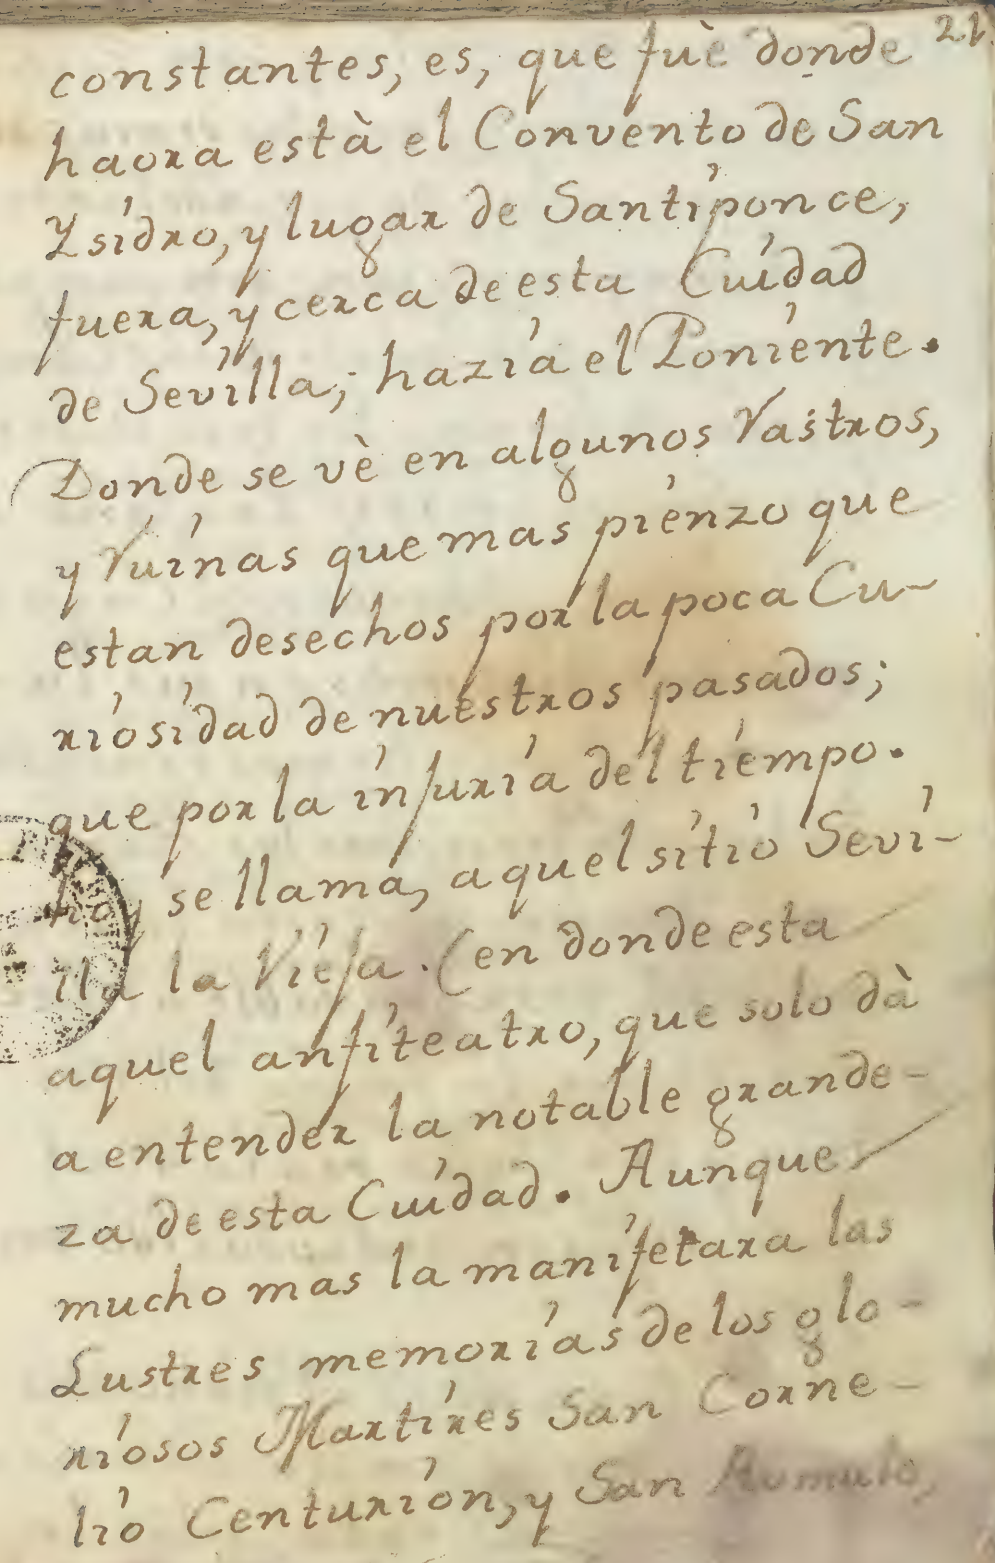 21.
constantes, es, que fuè donde
haora està el Convento de San
Ysidro, y lugar de Santiponce,
fuera, y cerca de esta Cuidad
de Sevilla; hazia el Poniente.
Donde se vè en algunos Rastros,
y Ruinas que mas pienzo que
estan desechos por la poca Cu-
riosidad de nuestros pasados;
que por la injuria del tiempo.
hoy se llama, aquel sitio Sevi-
lla la Vieja. (en donde esta
aquel anfiteatro, que solo dà
a entender la notable grande-
za de esta Cuidad. Aunque
mucho mas la manifetara las
Lustres memorias de los glo-
riosos Martires San Corne-
lio Centurion, y San Romulo,